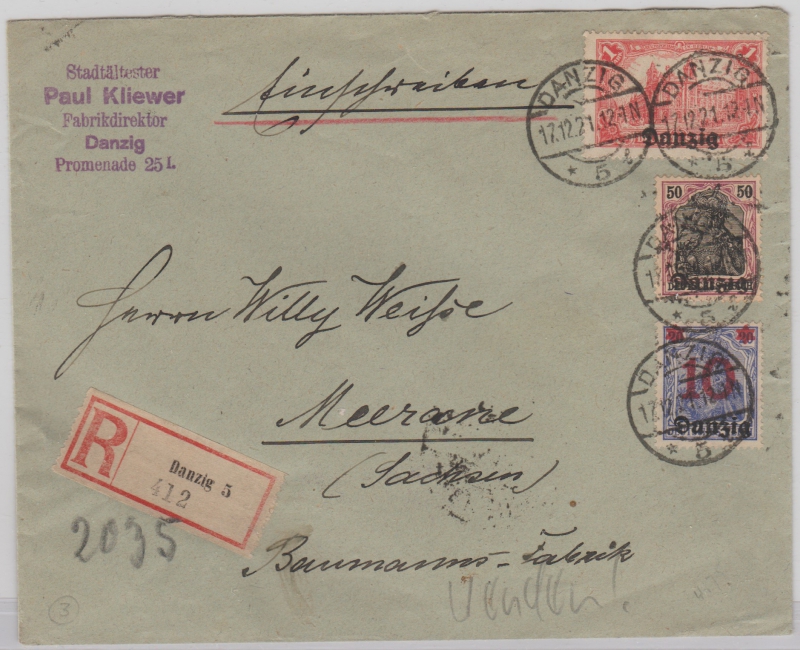 Stadtältester
Paul Kliewer
Fabrikdirektor
Danzig
Promenade 25 I.
Einschreiben
1 1
Danzig
DANZIG
17.12.21.12-1N
* 5 *
DANZIG
17.12.21.12-1N
* 5 *
50 50
Danzig
DANZIG
* 5
20 20
10
Danzig
DANZIG
17.12.21
* 5
Herrn Willy Weiße
Meerane
(Sachsen)
Baumanns-Fabrik
R
Danzig 5
412
2035
3